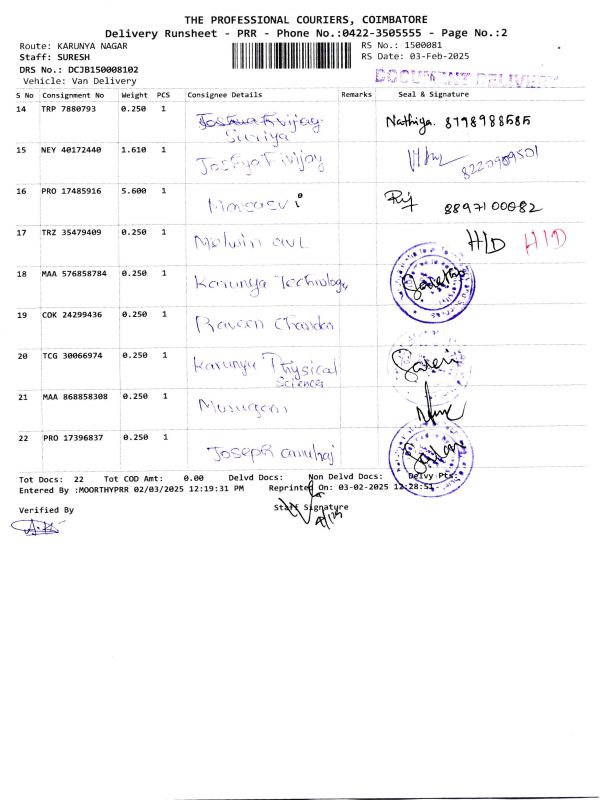 THE PROFESSIONAL COURIERS, COIMBATORE
Delivery Runsheet - PRR - Phone No.:0422-3505555 - Page No.:2
Route: KARUNYA NAGAR RS No.: 1500081
Staff: SURESH RS Date: 03-Feb-2025
DRS No.: DCJB150008102 DOCUMENT DELIVERY
Vehicle: Van Delivery
S No Consignment No Weight PCS Consignee Details Remarks Seal & Signature
14 TRP 7880793 0.250 1 Suriya Nathiya. 8798988585
15 NEY 40172440 1.610 1 8220989501
16 PRO 17485916 5.600 1 8897100082
17 TRZ 35479409 0.250 1 Melwin H/D H/D
18 MAA 576858784 0.250 1 Karunya Technology
19 COK 24299436 0.250 1 Raveen Chandar
20 TCG 30066974 0.250 1 Karunya Physical
Sciences
21 MAA 868858308 0.250 1 Murugan
22 PRO 17396837 0.250 1 Joseph
Tot Docs: 22 Tot COD Amt: 0.00 Delvd Docs: Non Delvd Docs: Delvy Pts:
Entered By :MOORTHYPRR 02/03/2025 12:19:31 PM Reprinted On: 03-02-2025 12:28:51
Verified By Staff Signature